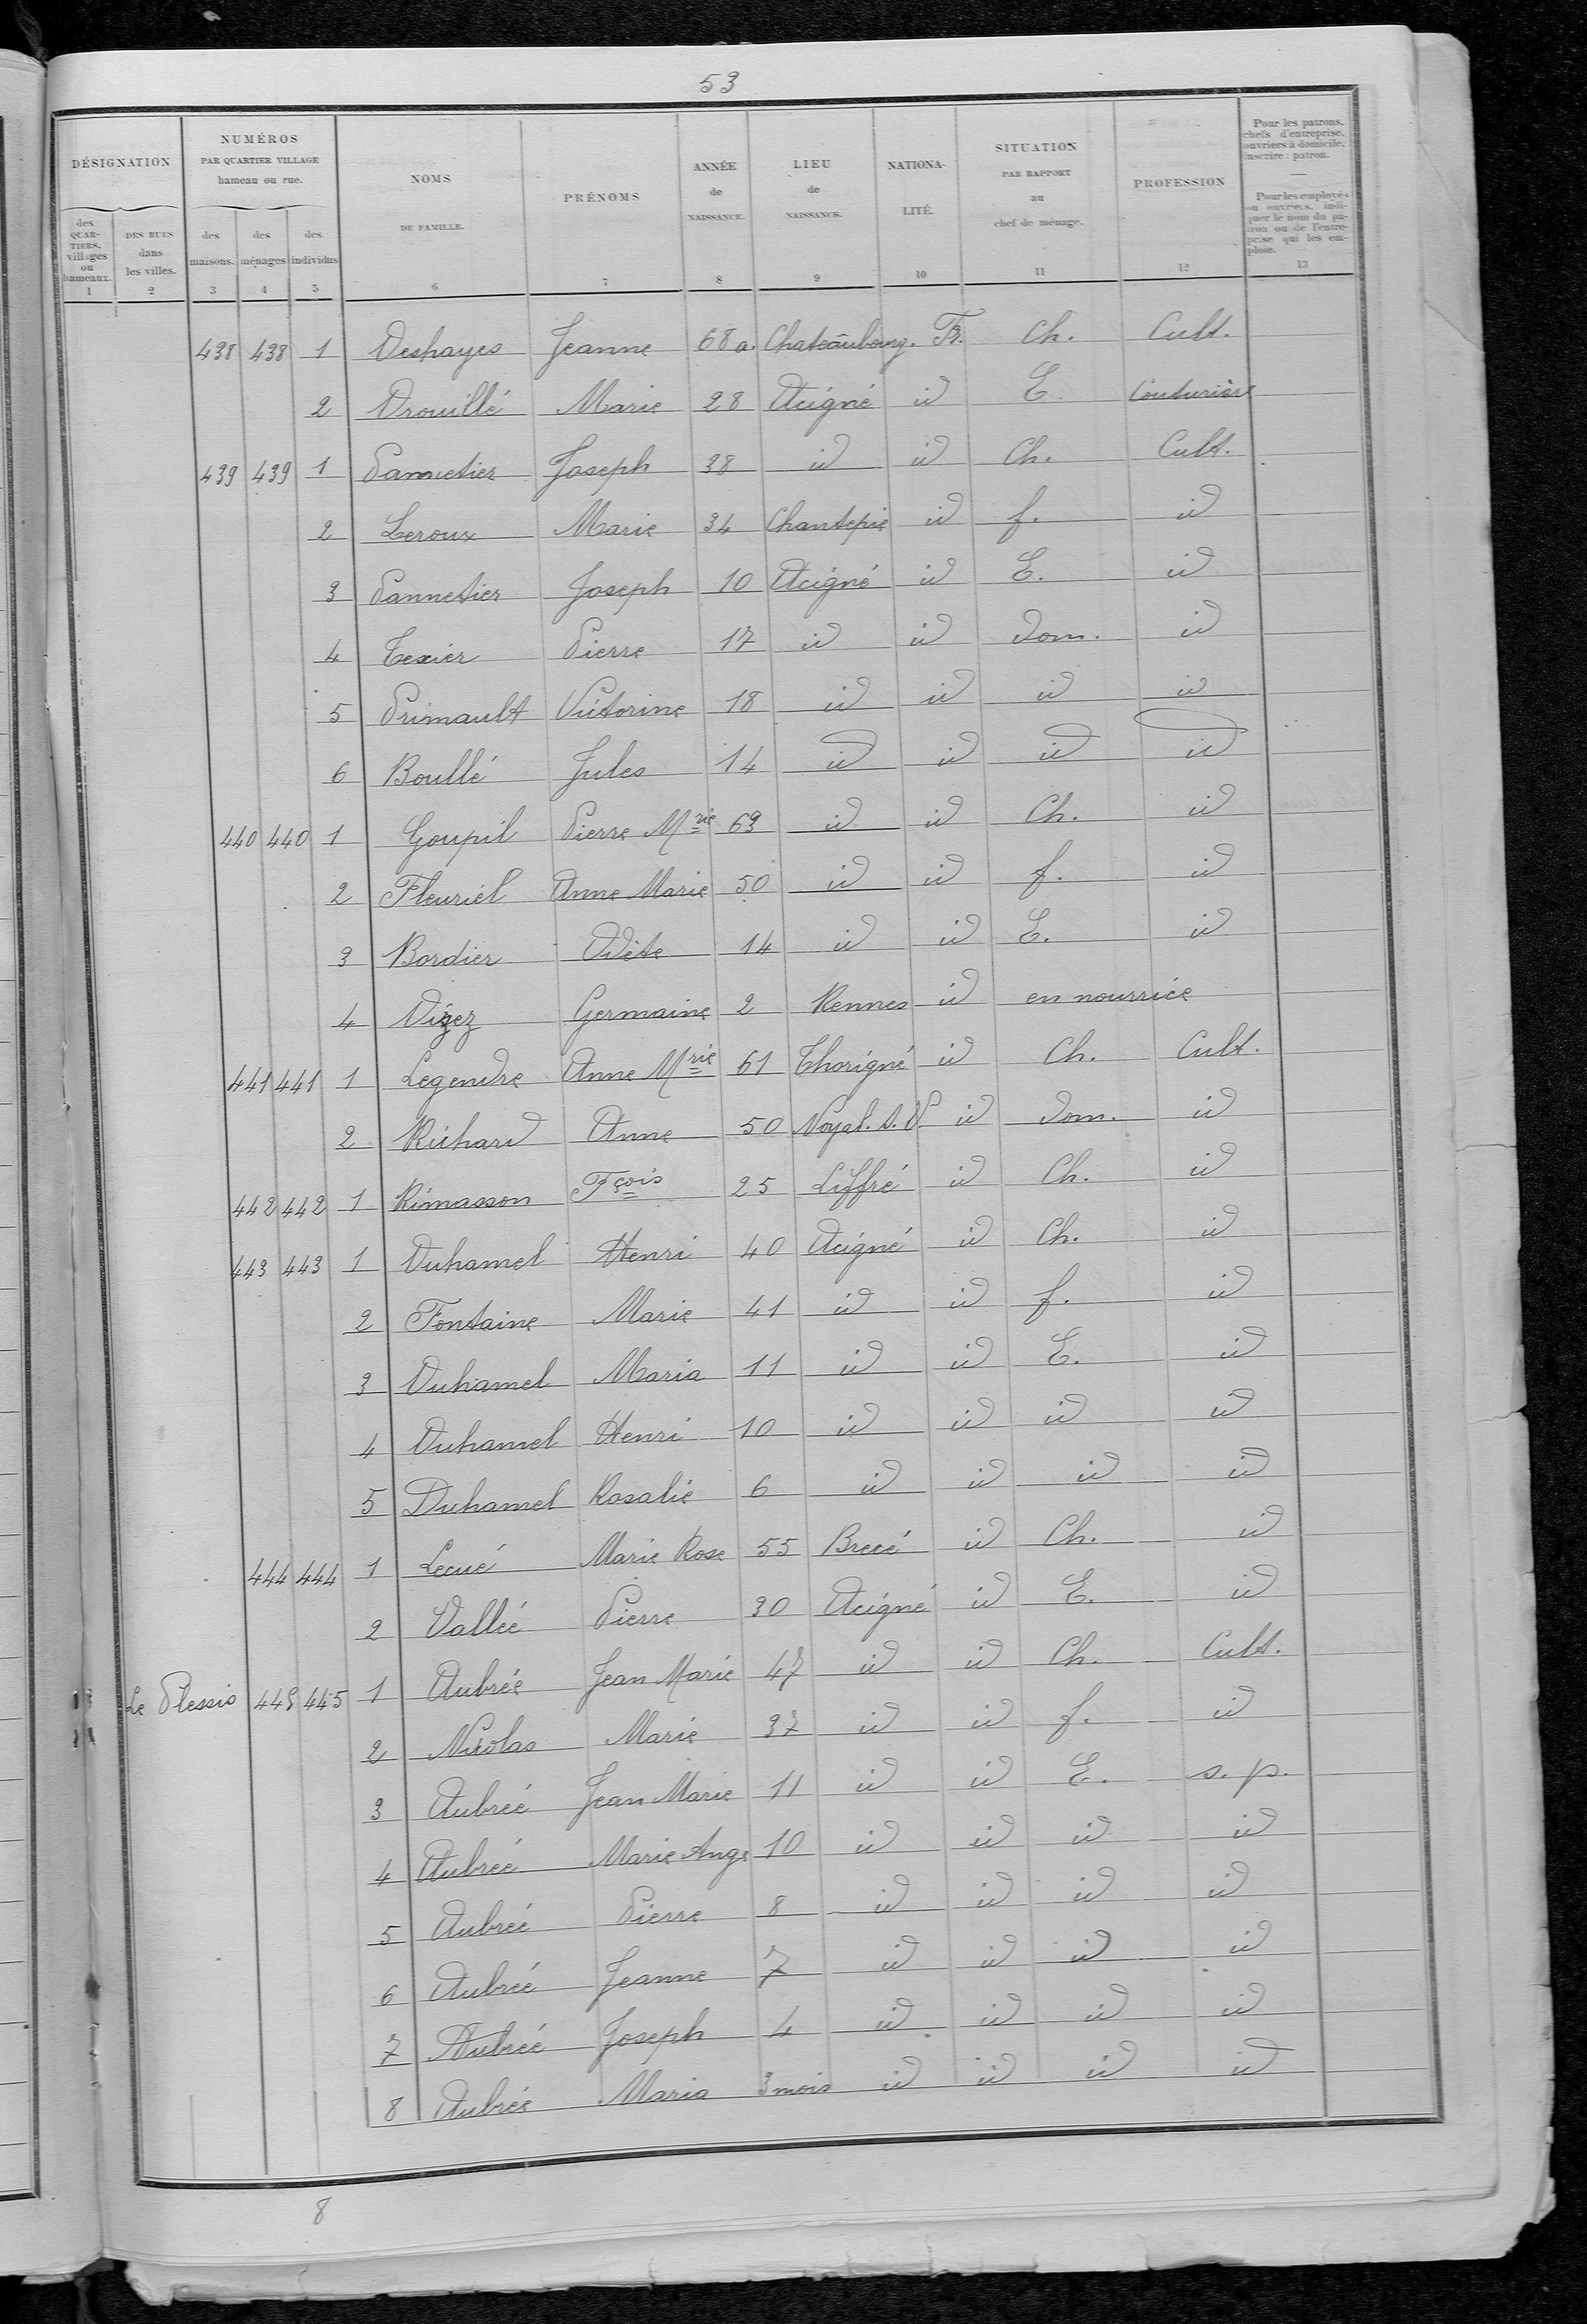 53
DÉSIGNATION NUMÉROS PAR QUARTIER VILLAGE hameau ou rue. NOMS DE FAMILLE. PRÉNOMS ANNÉE de NAISSANCE. LIEU de NAISSANCE. NATIONA-LITÉ. SITUATION PAR RAPPORT au chef de ménage. PROFESSION Pour les patrons, chefs d'entreprise, ouvriers à domicile, inscrire : patron. — Pour les employés ou ouvriers, indiquer le nom du patron ou de l'entreprise qui les emploie.
des QUAR-TIERS, villages ou hameaux. DES RUES dans les villes. des maisons. des ménages des individus
1 2 3 4 5 6 7 8 9 10 11 12 13
438 438 1 Deshayes Jeanne 68 a. Chateâubourg. Fr. Ch. Cult.
2 Drouillé Marie 28 Acigné id E. Couturière
439 439 1 Pannetier Joseph 38 id id Ch. Cult.
2 Leroux Marie 34 Chantepie id f. id
3 Pannetier Joseph 10 Acigné id E. id
4 Texier Pierre 17 id id dom. id
5 Primault Victorine 18 id id id id
6 Boullé Jules 14 id id id id
440 440 1 Goupil Pierre Mrie 63 id id Ch. id
2 Fleuriel Anne Marie 50 id id f. id
3 Bordier Odète 14 id id E. id
4 Germaine 2 Rennes id en nourrice
441 441 1 Legendre Anne Mrie 61 Thorigné id Ch. Cult.
2 Richard Anne 50 Noyal. s. V. id dom. id
442 442 1 Rimasson Fçois 25 Liffré id Ch. id
443 443 1 Duhamel Henri 40 Acigné id Ch. id
2 Fontaine Marie 41 id id f. id
3 Duhamel Maria 11 id id E. id
4 Duhamel Henri 10 id id id id
5 Duhamel Rosalie 6 id id id id
444 444 1 Lecué Marie Rose 55 Brecé id Ch. id
2 Vallée Pierre 30 Acigné id E. id
Le Plessis 445 445 1 Aubrée Jean Marie 47 id id Ch. Cult.
2 Nicolas Marie 37 id id f. id
3 Aubrée Jean Marie 11 id id E. s. p.
4 Aubrée Marie Ange 10 id id id id
5 Aubrée Pierre 8 id id id id
6 Aubrée Jeanne 7 id id id id
7 Aubrée Joseph 4 id id id id
8 Aubrée Maria 3 mois id id id id
8